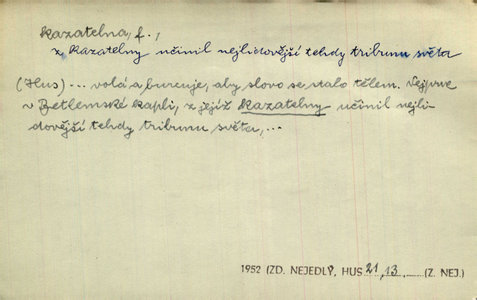 kazatelna, f.,
z kazatelny učinil nejlidovější tehdy tribunu světa
(Hus)... volá a burcuje, aby slovo se stalo tělem. Nejprve
v Betlemské kapli, z jejíž kazatelny učinil nejli-
dovější tehdy tribunu světa,...
1952 (ZD. NEJEDLÝ, HUS 21, 13. (Z. NEJ.)